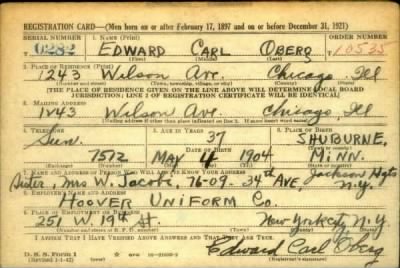 REGISTRATION CARD—(Men born on or after February 17, 1897 and on or before December 31, 1921)
SERIAL NUMBER 1. NAME (Print) ORDER NUMBER
0282 EDWARD CARL OBERG 10535
(First) (Middle) (Last)
2. PLACE OF RESIDENCE (Print)
1243 Wilson Ave. Chicago, Ill
(Number and street) (Town, township, village, or city) (County) (State)
[THE PLACE OF RESIDENCE GIVEN ON THE LINE ABOVE WILL DETERMINE LOCAL BOARD
JURISDICTION; LINE 2 OF REGISTRATION CERTIFICATE WILL BE IDENTICAL]
3. MAILING ADDRESS
1243 Wilson Ave. Chicago, Ill
[Mailing address if other than place indicated on line 2. If same insert word same]
4. TELEPHONE 5. AGE IN YEARS 6. PLACE OF BIRTH
Sun. 37 SHUBURNE,
DATE OF BIRTH
7512 MAY 4 1904 MINN.
(Exchange) (Number) (Mo.) (Day) (Yr.) (State or country)
7. NAME AND ADDRESS OF PERSON WHO WILL ALWAYS KNOW YOUR ADDRESS Jackson Hgts
Sister, Mrs W. Jacobi, 76-09-34th Ave, N.Y.
8. EMPLOYER'S NAME AND ADDRESS
HOOVER UNIFORM Co.
9. PLACE OF EMPLOYMENT OR BUSINESS
251 W. 19th St. New York city, N.Y
(Number and street or R. F. D. number) (Town) (County) (State)
I AFFIRM THAT I HAVE VERIFIED ABOVE ANSWERS AND THAT THEY ARE TRUE.
D. S. S. Form 1
(Revised 1-1-42) Edward Carl Oberg